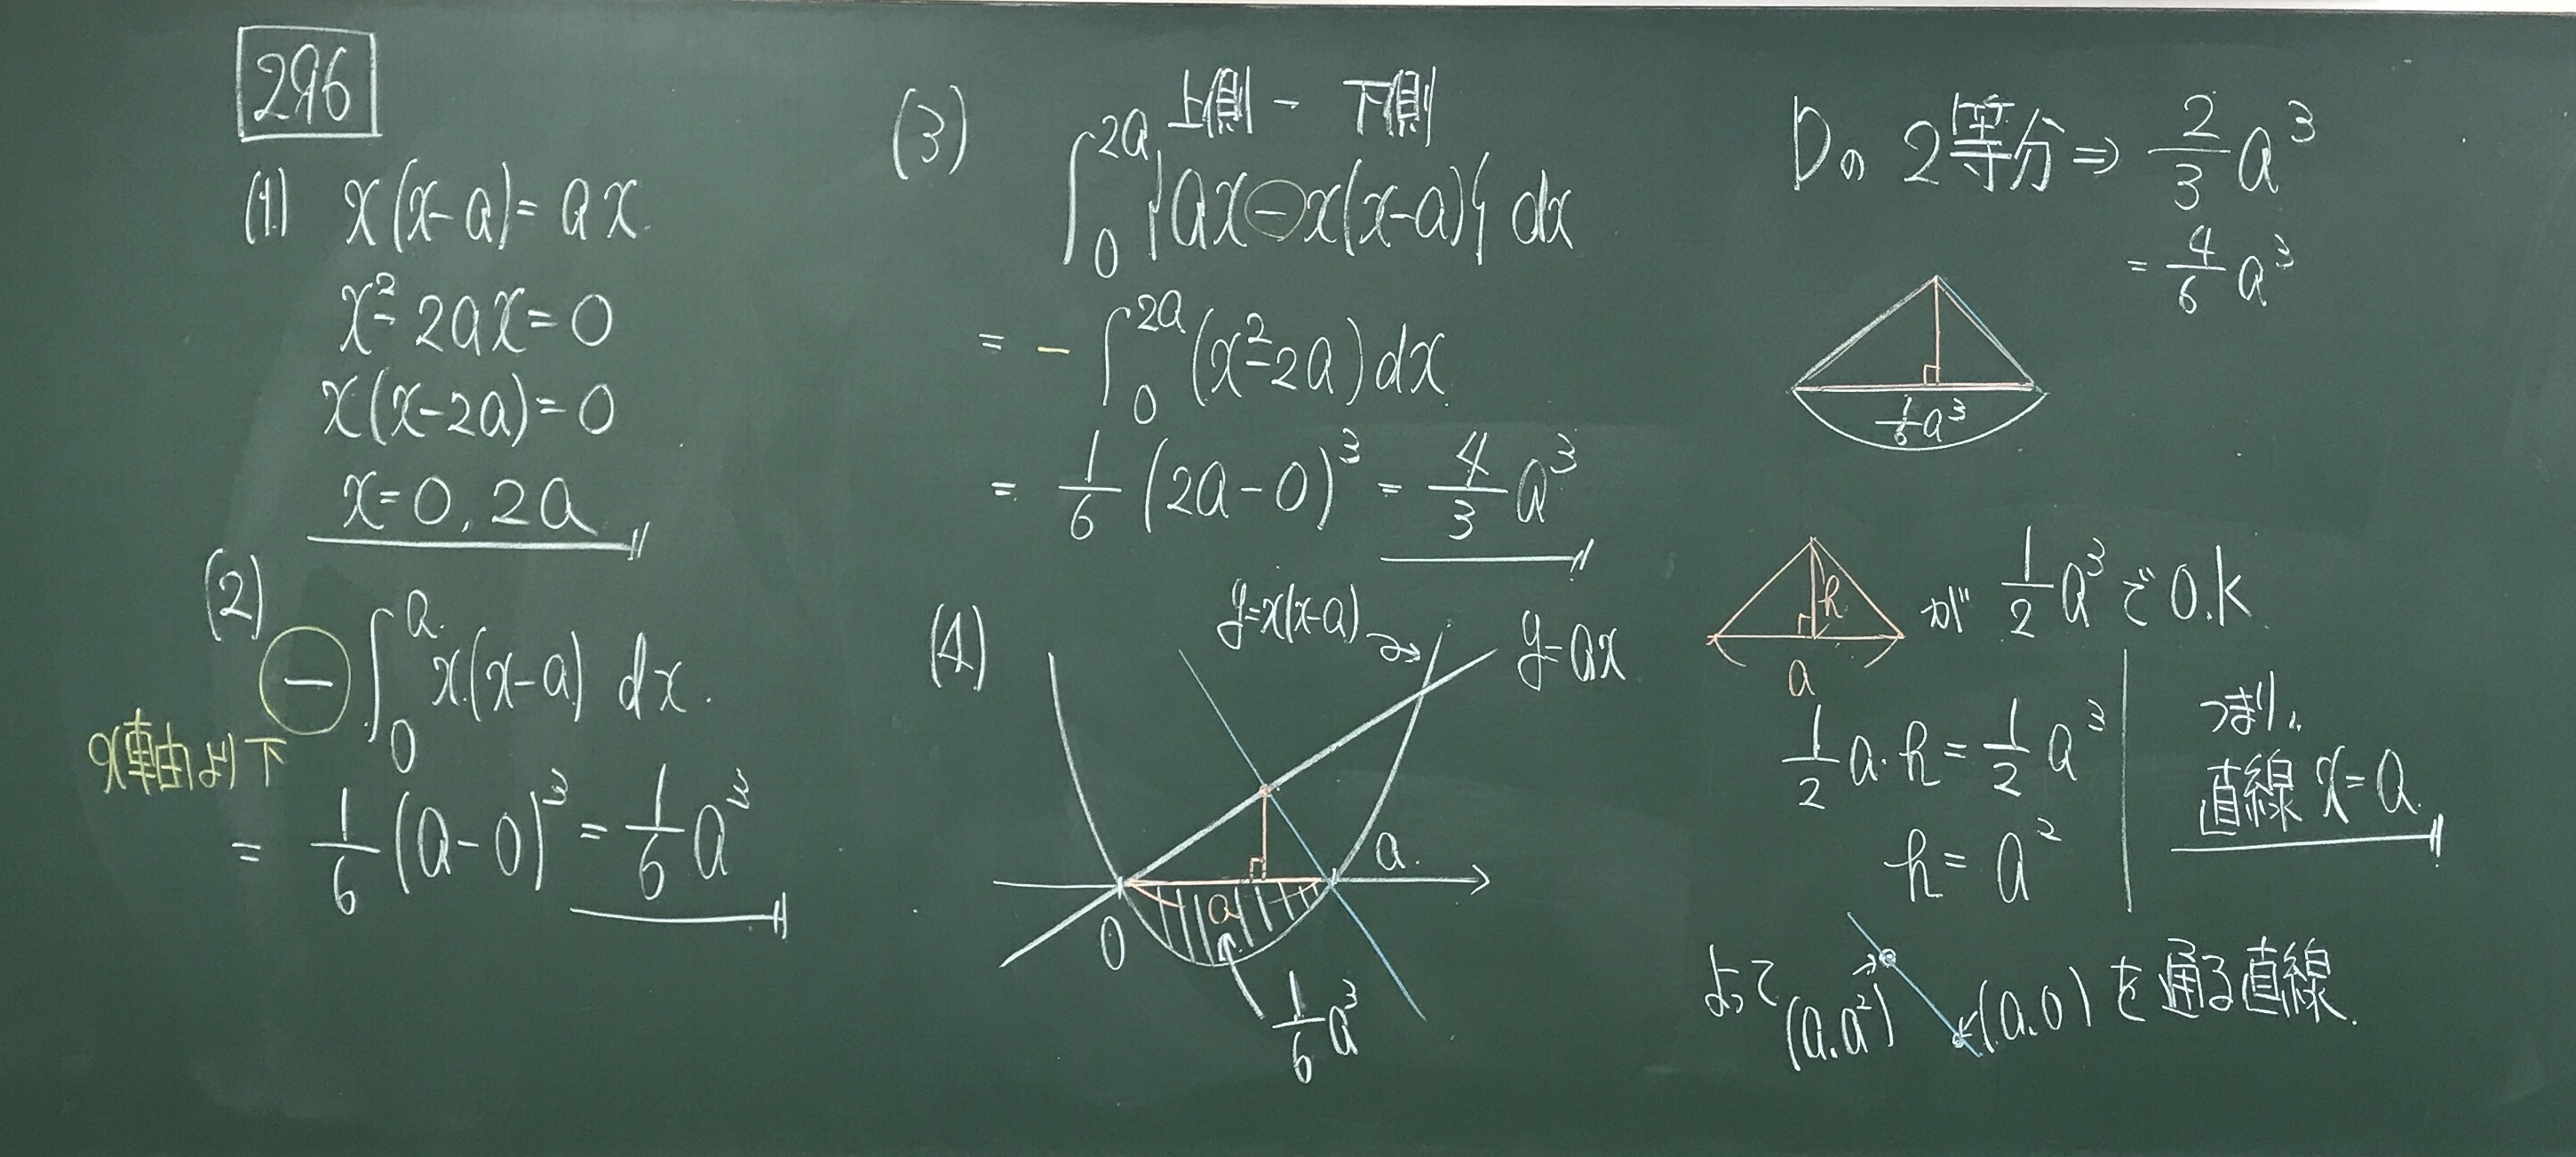 296
(1) x(x-a)=ax
x²-2ax=0
x(x-2a)=0
x=0, 2a
(2)
-∫₀ᵃ x(x-a) dx.
x軸より下
= 1/6 (a-0)³ = 1/6 a³
(3) 上側 - 下側
∫₀²ᵃ {ax-x(x-a)} dx
= -∫₀²ᵃ (x²-2a) dx
= 1/6 (2a-0)³ = 4/3 a³
(4)
y=x(x-a)
y=ax
a
O
a
1/6 a³
Dの 2等分⇒ 2/3 a³
= 4/6 a³
1/6 a³
h
a
が 1/2 a³ でO.K
1/2 a・h = 1/2 a³
h = a²
つまり、
直線 x=a
よって (a.a²) (a.0) を通る直線.